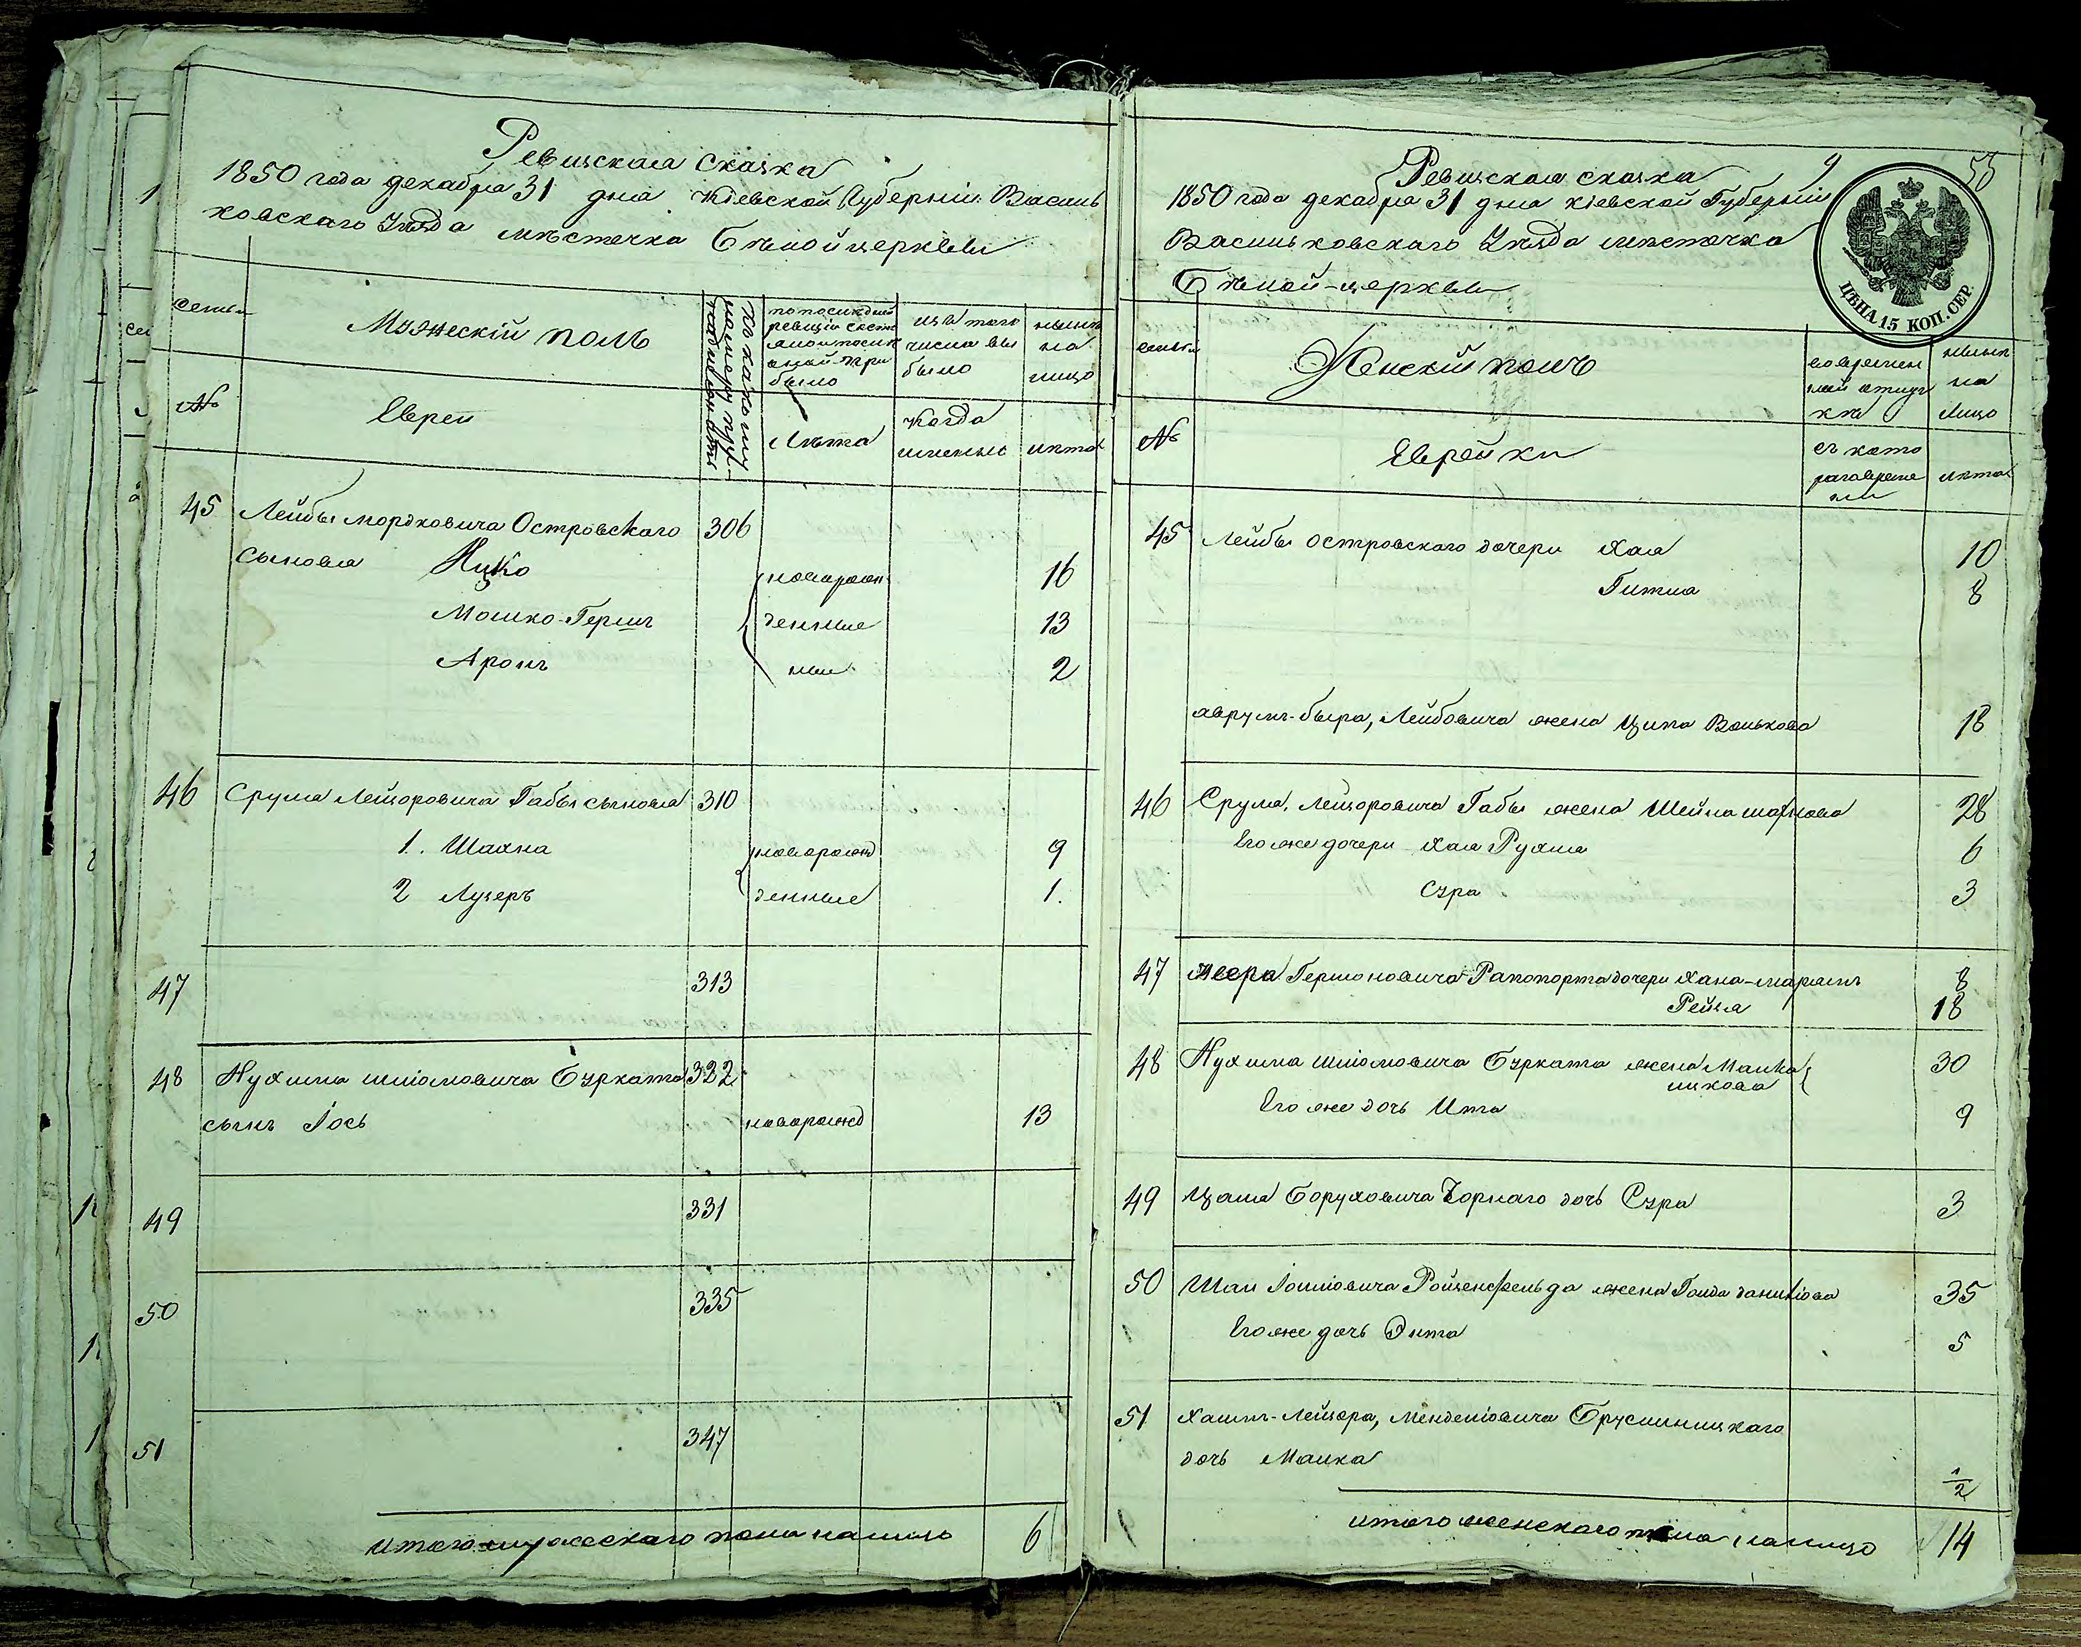 Ревизская сказка
1850 года декабря 31 дня Кіевской Губерніи Василь
ковскаго Уѣзда мѣстечка Бѣлой церкви
семьи
Мужескій полъ
по последней
ревизіи состо
было
изъ того
числа вы
было
нынѣ
на
лицо
№
Евреи
Лѣта
когда
именно
лѣта
45 Лейбы Мордковича Островскаго 306
сыновья Ицко новорож 16
Мошко-Герш денные 13
Аронъ 2
46 Срула Лейзоровича Габы сыновья 310
1. Шахна новорожд 9
2 Лузеръ денные 1.
47 313
48 Нухима Шліомовича Бурката 322
сынъ Іось новорожд 13
49 331
50 335
51 347
итого мужескаго пола налицо 6
9
55
Ревизская сказка
1850 года декабря 31 дня Кіевской Губерніи
Васильковскаго Уѣзда мѣстечка
Бѣлой-церкви
ЦѢНА 15 КОП. СЕР.
семьи
Женскій полъ
во времен
ной отлуч
кѣ
нынѣ
на
лицо
№
Еврейки
съ кото
раго време
ни
лѣта
45 Лейбы Островскаго дочери Хая 10
Гитла 8
Аврумъ-Бера, Лейбовича жена Ципа Волькова 18
46 Срула, Лейзоровича Габы жена Шейна 28
Его же дочери Хая Рухля 6
Сура 3
47 Меера Гершоновича Рапопорта дочери Хана-Маріамъ 8
Рейзя 18
48 Нухима Шліомовича Бурката жена Малка 30
ицкова
Его же дочь Ита 9
49 Боруховича Чорнаго дочь Сура 3
50 Шаи Ройзенфельда жена Голда Даниліова 35
Его же дочь Энта 5
51 Хаимъ-Лейзера, Менделіовича Брусиницкаго
дочь Малка
1/2
итого женскаго пола налицо 14